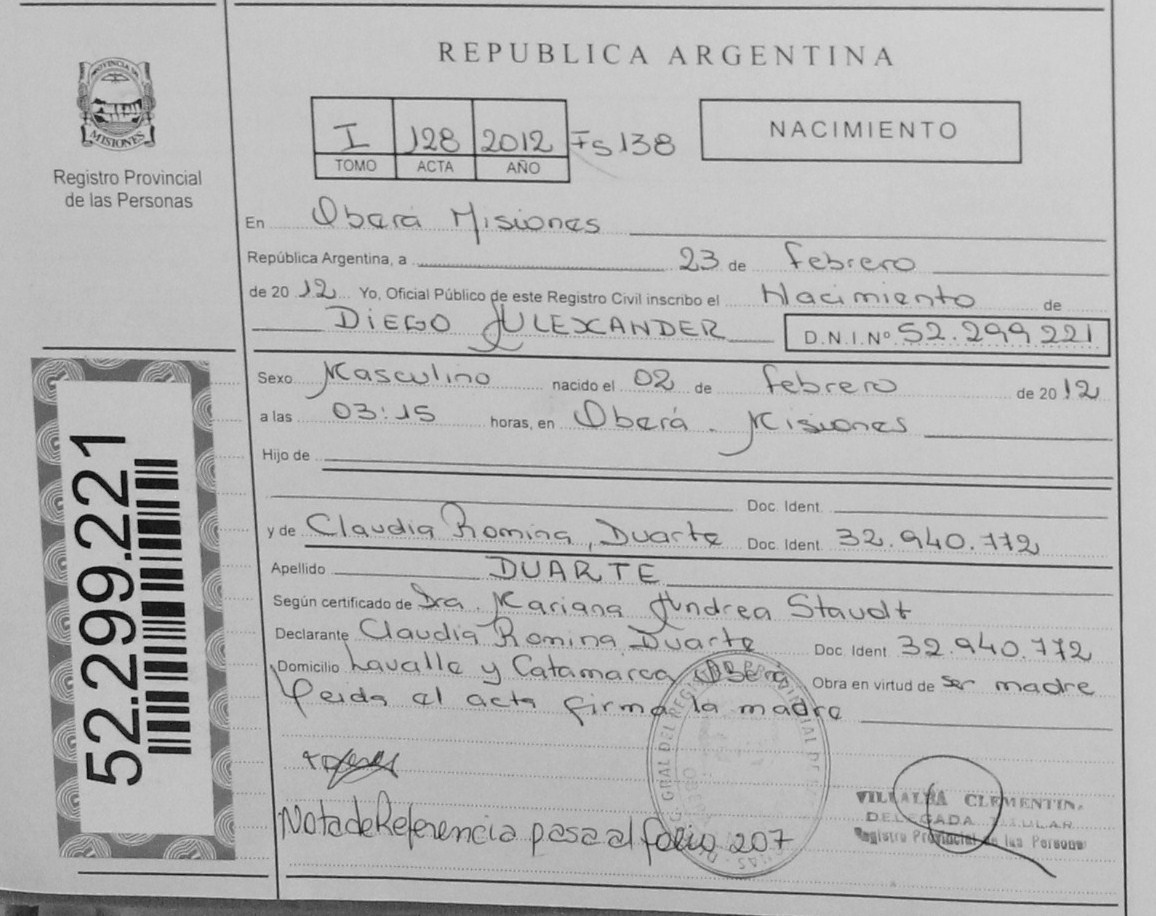 REPUBLICA ARGENTINA
PROVINCIA DE
MISIONES
Registro Provincial
de las Personas
I 128 2012 Fs 138
TOMO ACTA AÑO
NACIMIENTO
En Oberá Misiones
República Argentina, a 23 de febrero
de 2012 Yo, Oficial Público de este Registro Civil inscribo el Nacimiento de
DIEGO ALEXANDER D.N.I.Nº 52.299.221
Sexo Masculino nacido el 02 de febrero de 2012
a las 03:15 horas, en Oberá. Misiones
Hijo de
Doc. Ident.
y de Claudia Romina, Duarte Doc. Ident. 32.940.772
Apellido DUARTE
Según certificado de Dra. Mariana Andrea Staudt
Declarante Claudia Romina Duarte Doc. Ident. 32.940.772
Domicilio Lavalle y Catamarca, Oberá Obra en virtud de ser madre
Leida el acta firma la madre
Nota de Referencia pasa al folio 207
VILLALBA CLEMENTIN
DELEGADA TITULAR
Registro Provincial de las Persona
52.299.221